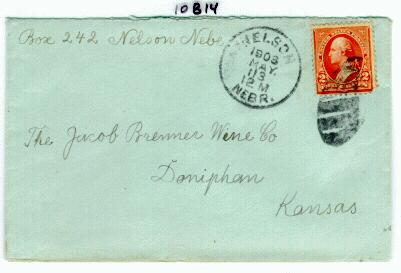 10814
Box 242 Nelson Nebr
NELSON
1903
MAY
13
12 M
NEBR.
2 2
The Jacob Brenner Wine Co
Doniphan
Kansas